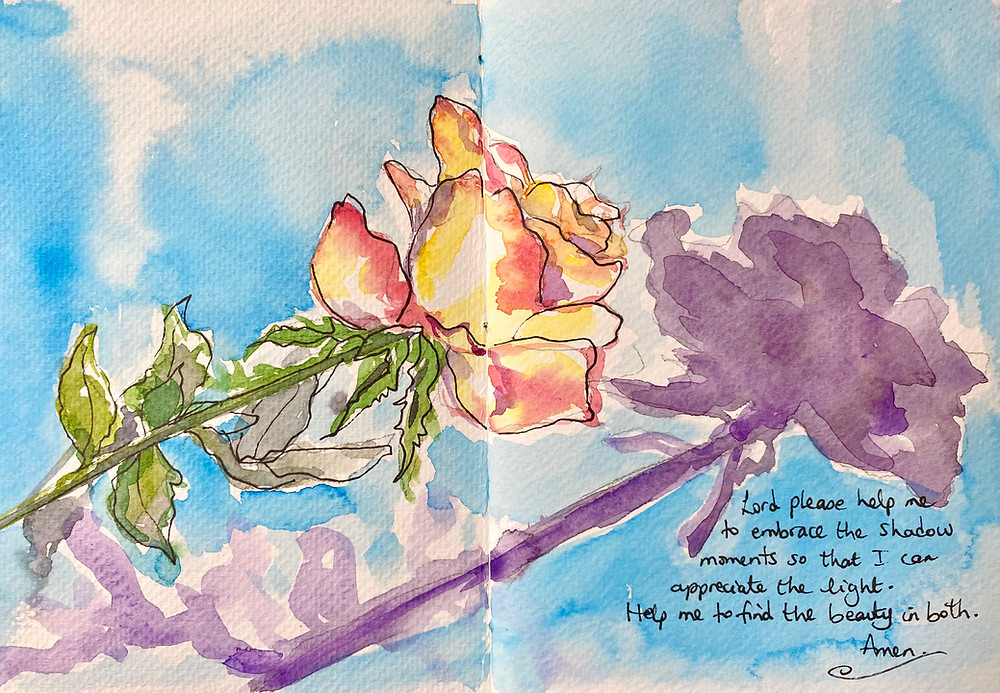 Lord please help me
to embrace the shadow
moments so that I can
appreciate the light.
Help me to find the beauty in both.
Amen.